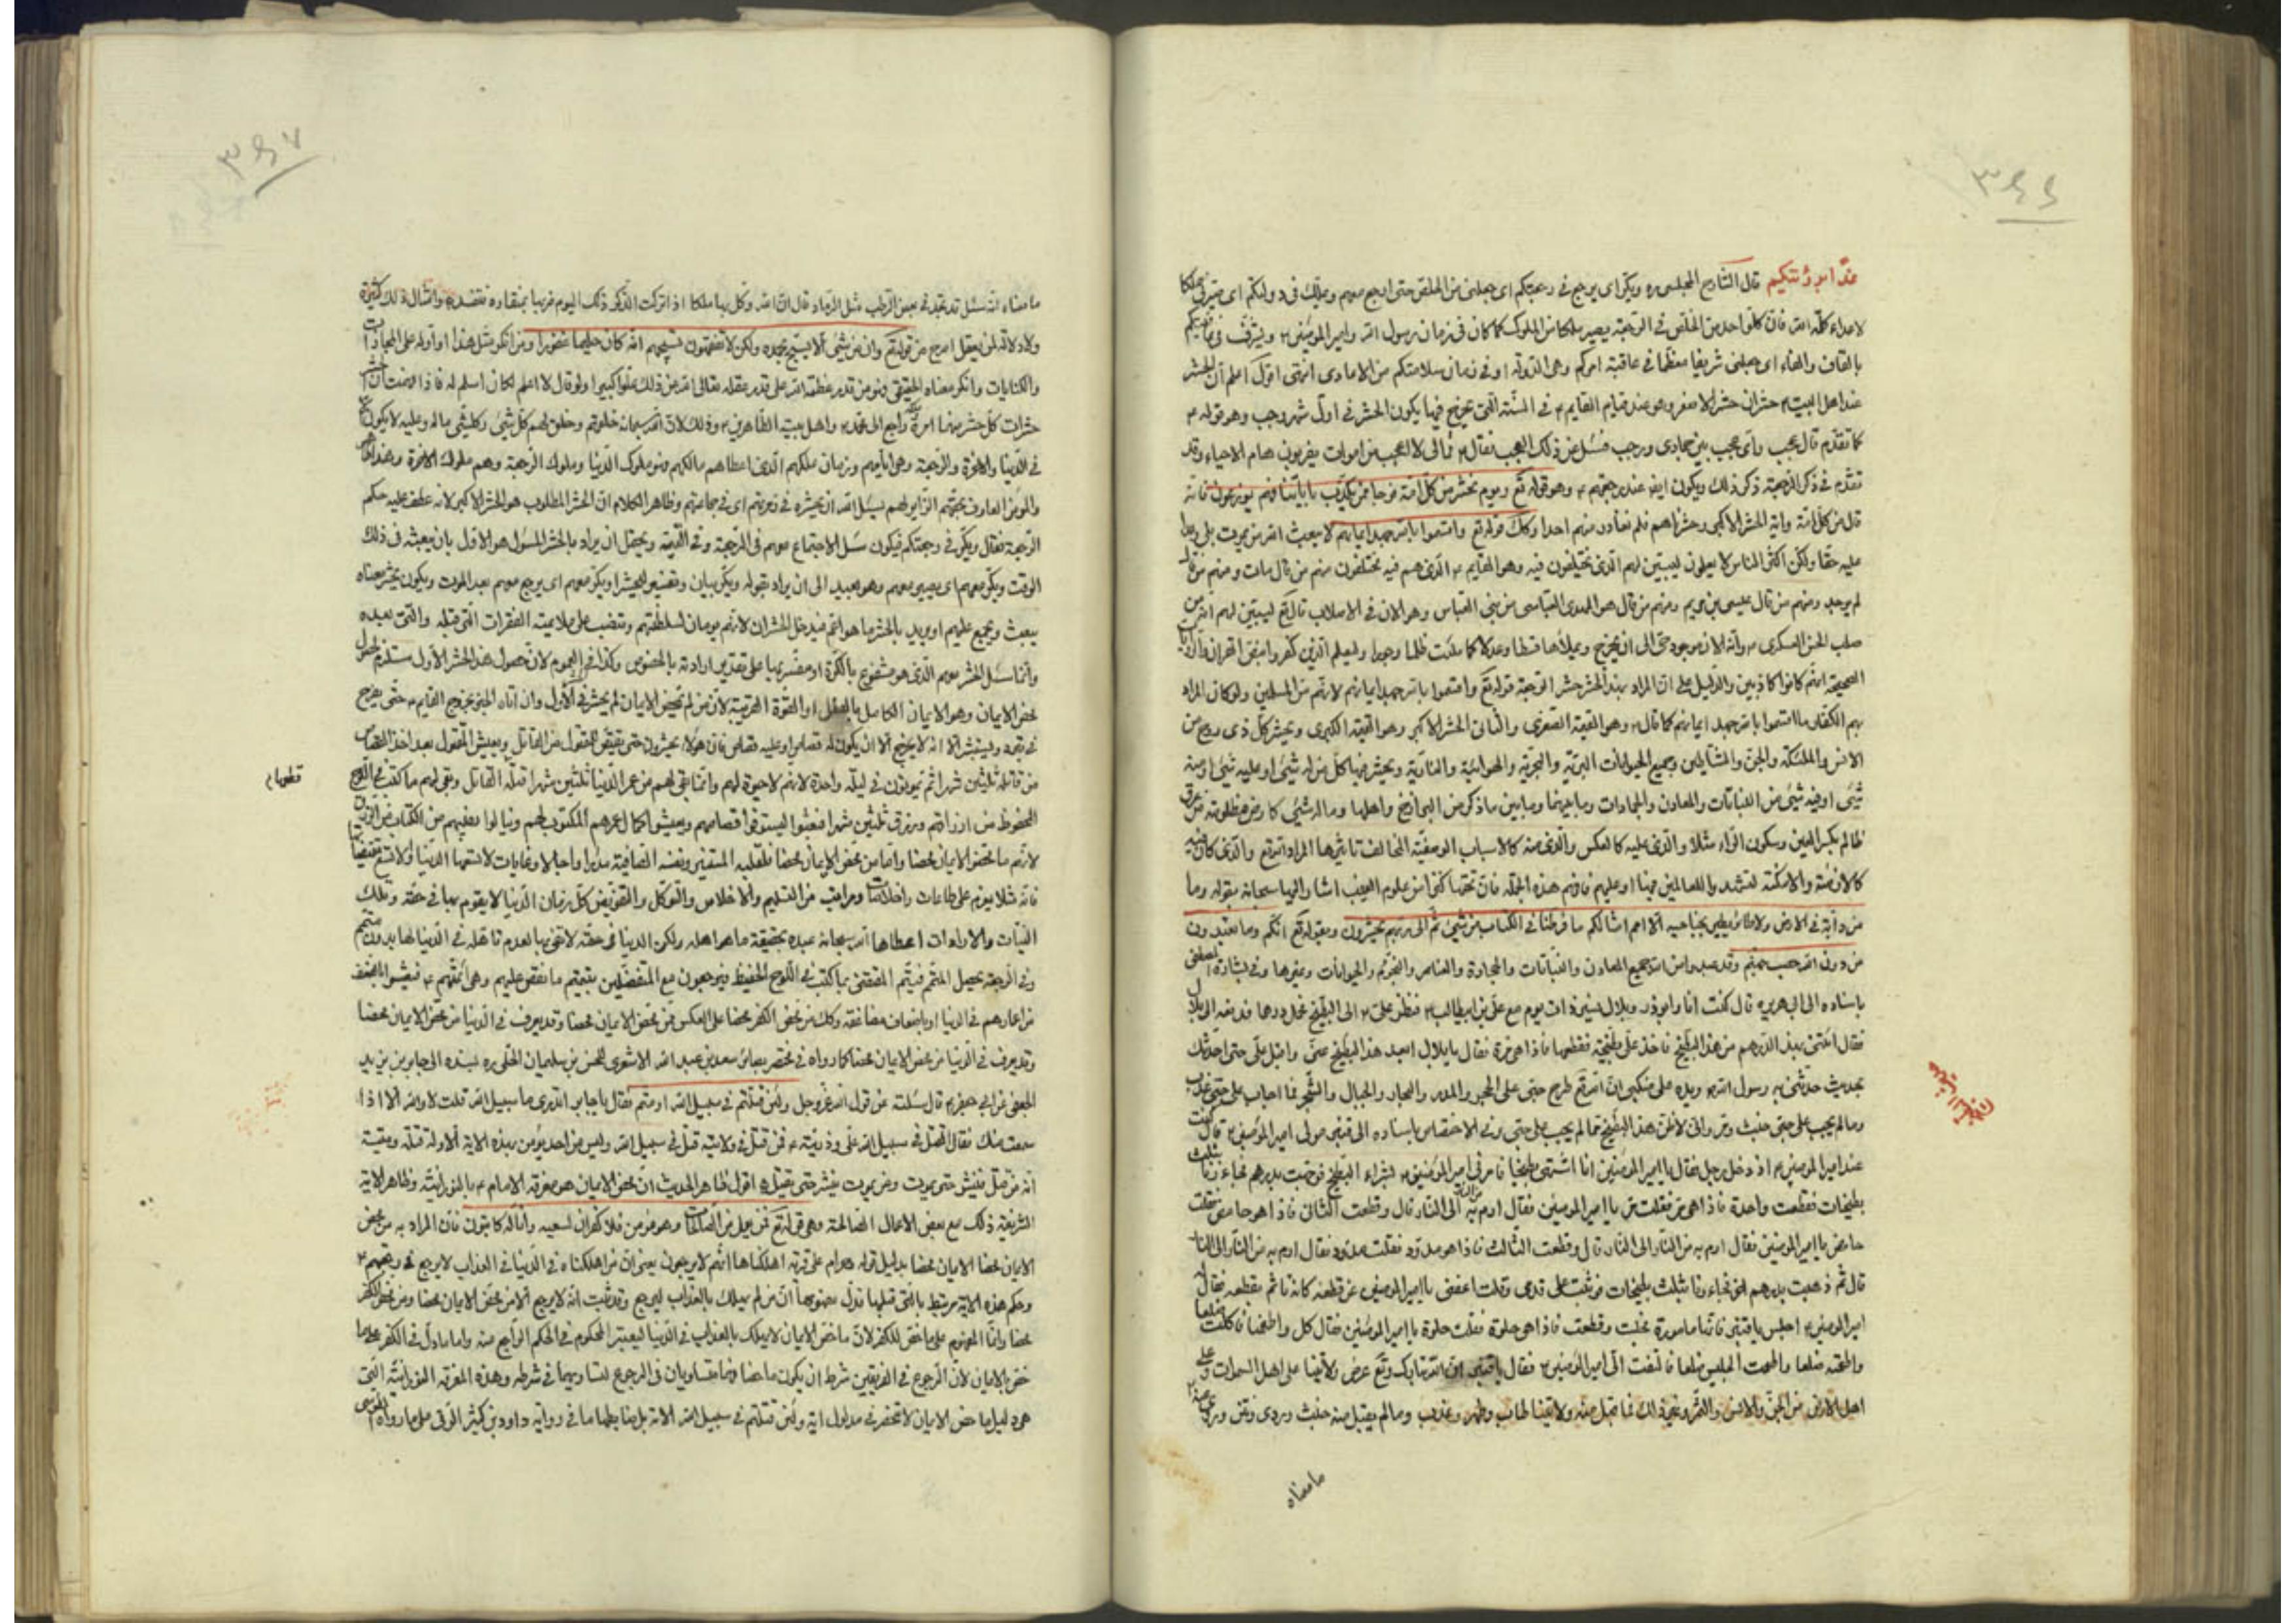 ٣٤٦
غدًا من زمرتكم قال الشارح المجلسي ره ويكر اى يرجع في رجعتكم اى يجعلنى من الخلّص حتى ارجع معهم ويملك في دولتكم اى يصير ملكا
لاعلاء كلمة الله فان كلّ واحد من الخلّص في الرجعة يصير ملكا من الملوك كما كان في زمان رسول الله وامير المؤمنين ويشرّف في عافيتكم
بالقاف والفاء اى يجعلنى شريفا معظما في عاقبة امركم وهى الدولة او في زمان سلامتكم من الاعادى انتهى اقول اعلم أن الحشر
عند اهل البيت حشران حشر الاصغر وهو عند قيام القايم في السنة التى يخرج فيها يكون الحشر في اول شهر رجب وهو قوله
كما تقدم قال عجب وأى عجب بين جمادى ورجب فسئل عن ذلك العجب فقال ومالى لا اعجب من اموات يضربون هام الاحياء وقد
تقدم في ذكر الرجعة ذكر ذلك ويكون ايضا عند رجعتهم وهو قوله تع ويوم نحشر من كل امة فوجا ممن يكذب بآياتنا فهم يوزعون فانه
قال من كل امة وآية الحشر الاكبر وحشرناهم فلم نغادر منهم احدا وكذلك قوله تع واقسموا بالله جهد ايمانهم لا يبعث الله من يموت بلى وعدا
عليه حقا ولكن اكثر الناس لا يعلمون ليبين لهم الذى يختلفون فيه وهو القايم الذى هم فيه مختلفون منهم من قال مات ومنهم من قال
لم يوجد ومنهم من قال عيسى بن مريم ومنهم من قال هو المهدى العباسى من بنى العباس وهو الان في الاصلاب قال تع ليبين لهم انه من
صلب الحسن العسكرى وانه الان موجود حى الى ان يخرج ويملأها قسطا وعدلا كما ملئت ظلما وجورا وليعلم الذين كفروا
انهم كانوا كاذبين والدليل على ان المراد بهذا الحشر حشر الرجعة قوله تع واقسموا بالله جهد ايمانهم لانهم من المسلمين ولو كان المراد
بهم الكفار ما اقسموا بالله جهد ايمانهم كما قال وهو القيمة الصغرى والثانى الحشر الاكبر وهو القيمة الكبرى ويحشر كل ذى روح من
الانس والملئكة والجن والشياطين وجميع الحيوانات البرية والبحرية والهوائية والنارية ويحشر فيها كل من له شىء او عليه شىء او منه
شىء او فيه شىء من النباتات والمعادن والجمادات وما بينهما وما بين ما ذكر من البرازخ واهلها وما له شىء كارض مظلومة من عرق
ظالم بكسر العين وسكون الراء مثلا والذى عليه كالعكس والذى منه كالاسباب الوضعية المخالف تأثيرها المراد الله تع والذى كان فيه
كالازمنة والامكنة لتشهد والله للعاملين فيها او عليهم فافهم هذه الجملة فان تحتها كنزا من علوم الغيب اشار اليها سبحانه بقوله وما
من دابة في الارض ولا طائر يطير بجناحيه الا امم امثالكم ما فرطنا في الكتاب من شىء ثم الى ربهم يحشرون وبقوله تع انكم وما تعبدون
من دون الله حصب جهنم وقد عبد وامن الله جميع المعادن والنباتات والحجارة والعناصر والنجوم والحيوانات وغيرها وفي بشارة المصطفى
باسناده الى ابى هريره قال كنت انا وابوذر وبلال نسير ذات يوم مع على بن ابيطالب فنظر على الى البطيخ فحل درهما فدفعه الى بلال
فقال ائتنى بهذا الدرهم من هذا البطيخ فاخذ على بطيخة فقطعها فاذا هى مرة فقال يا بلال ابعد هذا البطيخ عنى واقبل على حتى احدثك
بحديث حدثنى به رسول الله ويده على منكبى ان الله تع طرح حبى على الحجر والمدر والبحار والجبال والشجر فما اجاب على حبى عذب
وما لم يجب على حبى خبث ومر وانى لاظن هذا البطيخ مما لم يجب على حبى وفي الاختصاص باسناده الى قنبر مولى امير المؤمنين قال كنت
عند امير المؤمنين اذ دخل رجل فقال يا امير المؤمنين انا اشتهى بطيخا فامرنى امير المؤمنين بشراء البطيخ فوجهت بدرهم فجاءونا بثلث
بطيخات فقطعت واحدة فاذا هى مر فقلت مر يا امير المؤمنين فقال ارم به من النار الى النار قال وقطعت الثانى فاذا هو حامض فقلت
حامض يا امير المؤمنين فقال ارم به من النار الى النار قال وقطعت الثالث فاذا هو مدود فقلت مدود فقال ارم به من النار الى النار
قال ثم ذهبت بدرهم اخر فجاءونا بثلث بطيخات فوثبت على قدمى وقلت اعفنى يا امير المؤمنين عن قطعه كانه تأثم بقطعه فقال له
امير المؤمنين اجلس يا قنبر فانها مامورة فجلست وقطعت فاذا هى حلوة فقلت حلوة يا امير المؤمنين فقال كل واطعمنا فاكلت ضلعا
واطعمته ضلعا واطعمت الجليس ضلعا فالتفت الى امير المؤمنين فقال يا قنبر ان الله تبارك وتع عرض ولايتنا على اهل السموات وعلى
اهل الارض من الجن والانس والثمر وغير ذلك فما قبل منه ولايتنا طاب وطهر وعذب وما لم يقبل منه خبث وردى ونتن
ما معناه
٣٤٧
ما معناه انه سئل قد نجد في بعض الرطب مثل الرماد قال ان الله وكل بها ملكا اذا تركت الذكر ذلك اليوم ضربها بمنقاره وامثال ذلك كثيرة
ولا دلالة لمن يعقل اصرح من قوله تع وان من شىء الا يسبح بحمده ولكن لا تفقهون تسبيحهم انه كان حليما غفورا ومن انكر مثل هذا او أوله على المجازات
والكنايات وانكر معناه الحقيقى فهو من قدر عظمة الله على قدر عقله تعالى الله عن ذلك علوا كبيرا ولو قال لا اعلم لكان اسلم له فاذا عرفت أن الحشر
حشران كل حشر منهما امره راجع الى محمد واهل بيته الطاهرين وذلك لان الله سبحانه خلقهم وخلق لهم كل شىء وكل شىء ماله وعليه لا يكون
في الدنيا والاخرة والرجعة وهى ايامهم وزمان ملكهم الذى اعطاهم مالكهم فهو ملوك الدنيا وملوك الرجعة وهم ملوك الاخرة
والمؤمن العارف بحقهم الزاير لهم يسئل الله ان يحشره في زمرتهم اى في جماعتهم وظاهر الكلام ان الحشر المطلوب هو الحشر الاكبر لانه عطف عليه حكم
الرجعة فقال ويكر في رجعتكم فيكون سئل الاجتماع معهم في الرجعة وفي القيمة ويحتمل ان يراد بالحشر المسئول هو الاول بان يبعثه في ذلك
الوقت ويكر معهم اى يصير معهم وهو بعيد الى ان يراد بقوله ويكر بيان وتفسير ليحشر او يكر معهم اى يرجع معهم بعد الموت ويكون يحشر معناه
يبعث ويجمع عليهم او يريد بالحشر ما هو اعم فيدخل الحشران لانهم يومان لسلطنتهم وتنصب على ملاءمة الفقرات التى قبله والتى بعده
وانما سئل الحشر معهم الذى هو مشفوع بالكرة او مفسر بها على تقدير ارادته بالخصوص وكذا في العموم لان حصول هذا الحشر الاول مستلزم لحصول
محض الايمان وهو الايمان الكامل بالفعل او القوة القريبة لان من لم يمحض الايمان لم يحشر في الاول وان اتاه الخبر بخروج القايم حتى يخرج
في قبره ويستبشر الا انه لا يخرج الا ان يكون له قصاص او عليه قصاص فان هؤلاء يحشرون حتى يقتص المقتول من القاتل ويعيش المقتول بعد اخذ القصاص
من قاتله ثلثين شهرا ثم يموتون في ليلة واحدة لانهم لا حيوة لهم وانما بقى لهم من عمر الدنيا ثلثين شهرا قتله القاتل وبقى لهم ما كتب في اللوح
قطعها م
المحفوظ من ارزاقهم ورزق ثلثين شهرا فبعثوا ليستوفوا قصاصهم ويعيشوا كمال عمرهم المكتوب لهم وينالوا نصيبهم من الكتاب من الرزق
لانهم ما محض الايمان محضا واما من محض الايمان محضا فلقلبه المستنير ونفسه الصافية مددا واجالا وغايات لا تسعها الدنيا ولا تسع
فانه مثلا يعزم على طاعات واخلاق ومراتب من التسليم والاخلاص والتوكل والتفويض كل زمان الدنيا لا يقوم بها في حقه وتلك
النيات والارادات اعطاها الله سبحانه عبده بحقيقة ما هو اهله ولكن الدنيا في حقه لا تفى
وفي الرجعة يحصل المتمم فيتم المقتضى بما كتب في اللوح الحفيظ فيرجعون مع المتفضلين بتتميم ما نقص عليهم وهى ائمتهم فيعيشوا بالضعف
من اعمارهم في الدنيا او باضعاف مضاعفة وكذلك من محض الكفر محضا على العكس ممن محض الايمان محضا وقد يعرف في الدنيا من محض الايمان محضا
وقد يعرف في الدنيا من محض الايمان محضا كما رواه في مختصر بصائر سعد بن عبد الله الاشعرى للحسن بن سليمان الحلى ره بسنده الى جابر بن يزيد
الجعفى عن ابى جعفر قال سئلته عن قول الله عز وجل ولئن قتلتم في سبيل الله او متم فقال يا جابر اتدرى ما سبيل الله قلت لا والله الا اذا
سمعت منك فقال القتل في سبيل الله على وذريته فمن قتل في ولايته قتل في سبيل الله وليس من احد يؤمن بهذه الاية الا وله قتلة وميتة
انه من قتل فينشر حتى يموت ومن يموت ينشر حتى يقتل اقول ظاهر الحديث ان محض الايمان هو معرفة الامام بالنورانية وظاهر الاية
الشريفة ذلك مع بعض الاعمال الصالحة وهى قوله تع فمن يعمل من الصالحات وهو مؤمن فلا كفران لسعيه وانا له كاتبون فان المراد به من محض
الايمان محضا الايمان محضا بدليل قوله وحرام على قرية اهلكناها انهم لا يرجعون يعنى ان من اهلكناه في الدنيا في العذاب لا يرجع في رجعتهم
وحكم هذه الاية مرتبط بالتى قبلها تدل بمفهومها ان من لم يهلك بالعذاب ليرجع وقد ثبت انه لا يرجع الا من محض الايمان محضا ومن محض الكفر
محضا وانما المفهوم على ماحض للكفر لان ماحض الايمان لا يهلك بالعذاب في الدنيا ليعتبر المحكوم في الحكم الراجع منه واما ما دل في الكفر على ما
الايمان لان الرجوع في الفريقين شرط ان يكون ماحضا فهما متساويان في الرجوع لتساويهما في شرطه وهذه المعرفة النورانية التى
هى دليل ماحض الايمان لا تنحصر في مدلول اية ولئن قتلتم في سبيل الله الاية بل بنا بطها ما في رواية داود بن كثير الرقى على ما رواه